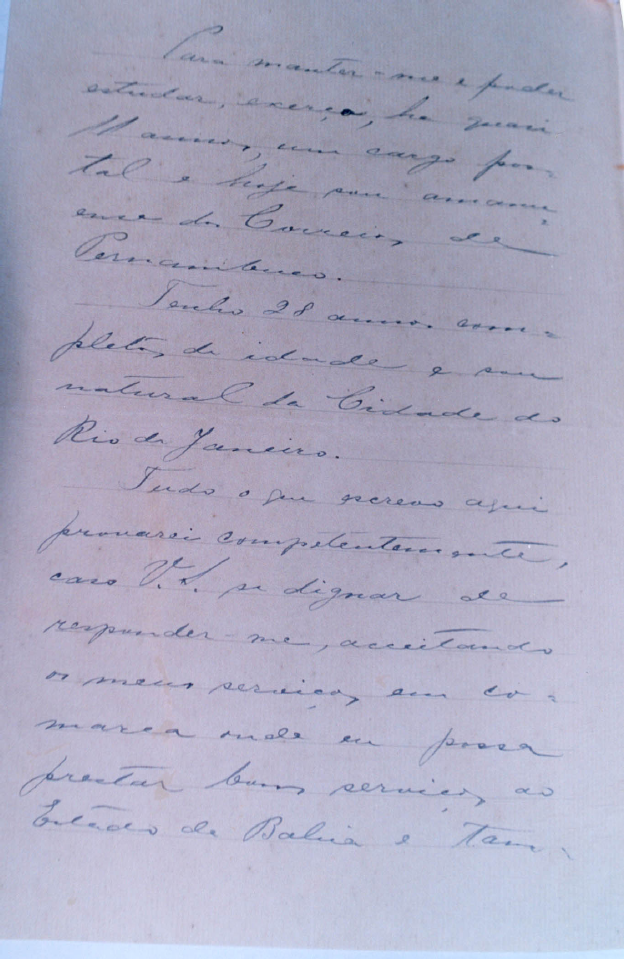 Para manter-me e poder
estudar, exerço, ha quasi
11 annos, um cargo pos-
tal e hoje sou amanu-
ense dos Correios de
Pernambuco.
Tenho 28 annos com-
pletos de idade e sou
natural da Cidade do
Rio de Janeiro.
Tudo o que escrevo aqui
provarei competentemente,
caso V. S. se dignar de
responder-me, acceitando
os meus serviços, em co-
marca onde eu possa
prestar bons serviços ao
Estado da Bahia e tam-